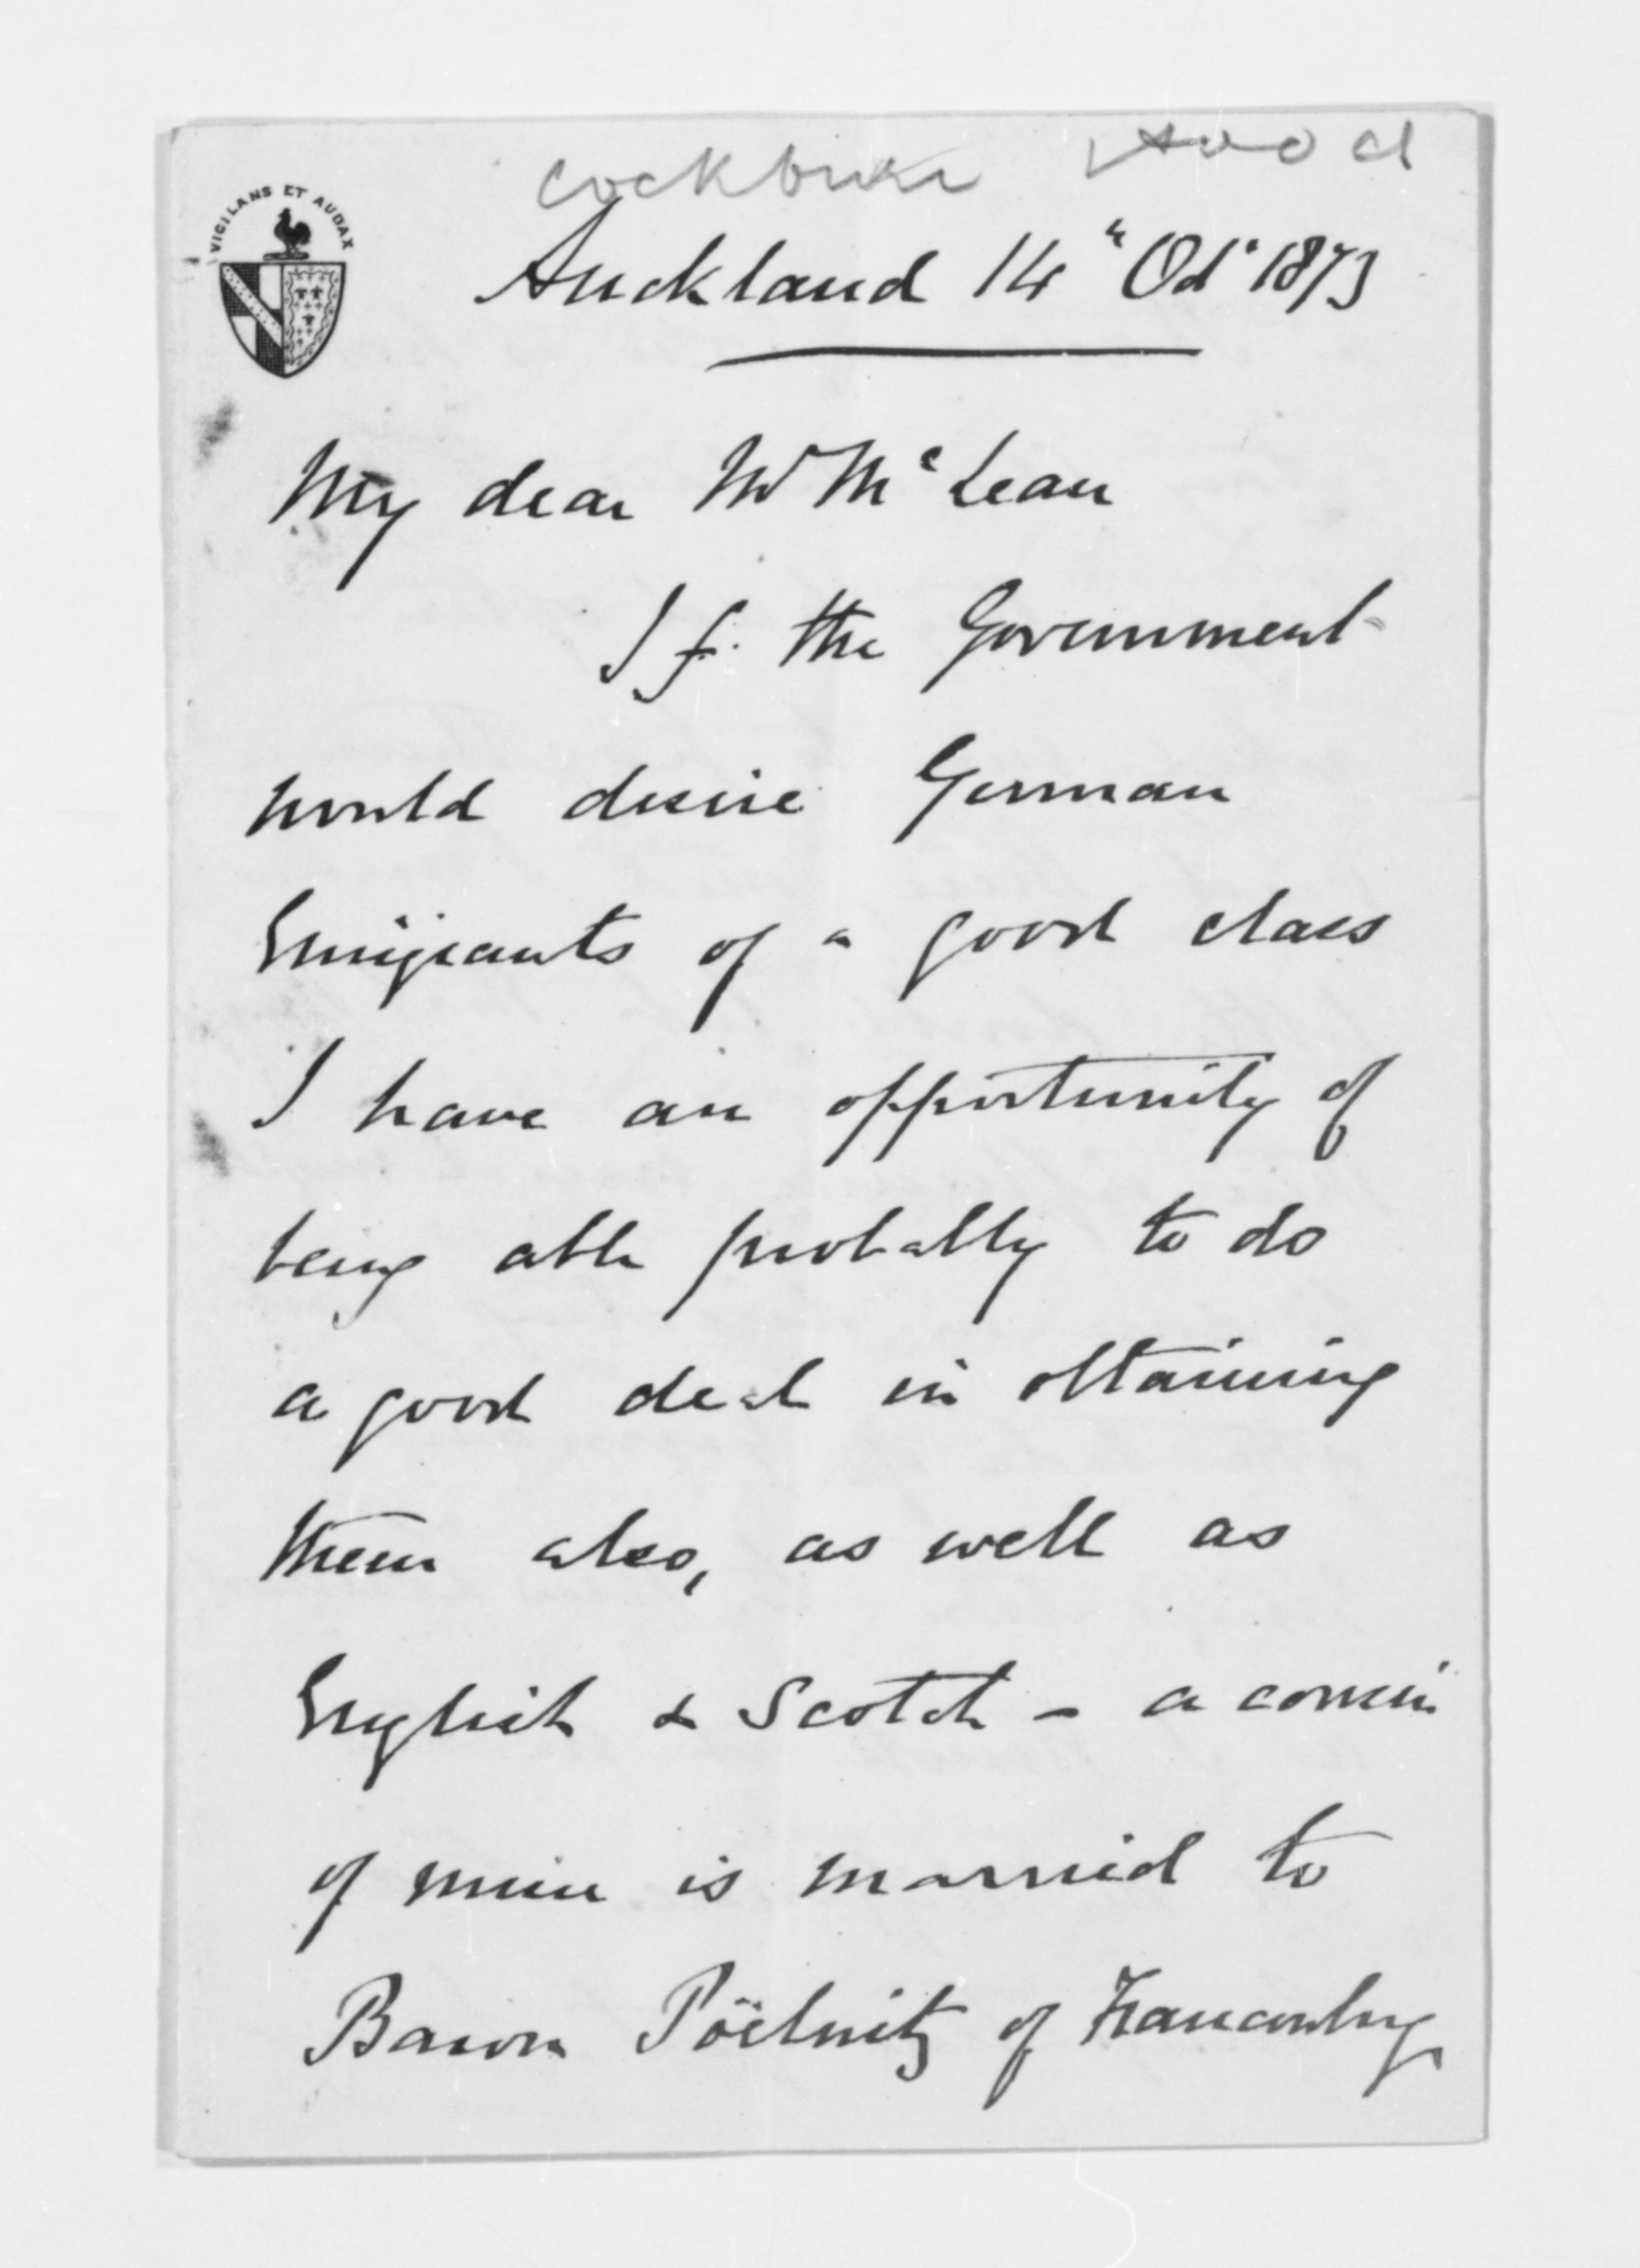 Cockburn Hood
VIGILANS ET AUDAX
Auckland 14" Oct 1873
My dear Mr McLean
If the Government
would desire German
Emigrants of a good class
I have an opportunity of
being able probably to do
a good deal in obtaining
them also, as well as
English & Scotch - a cousin
of mine is married to
Baron Pöelnitz of